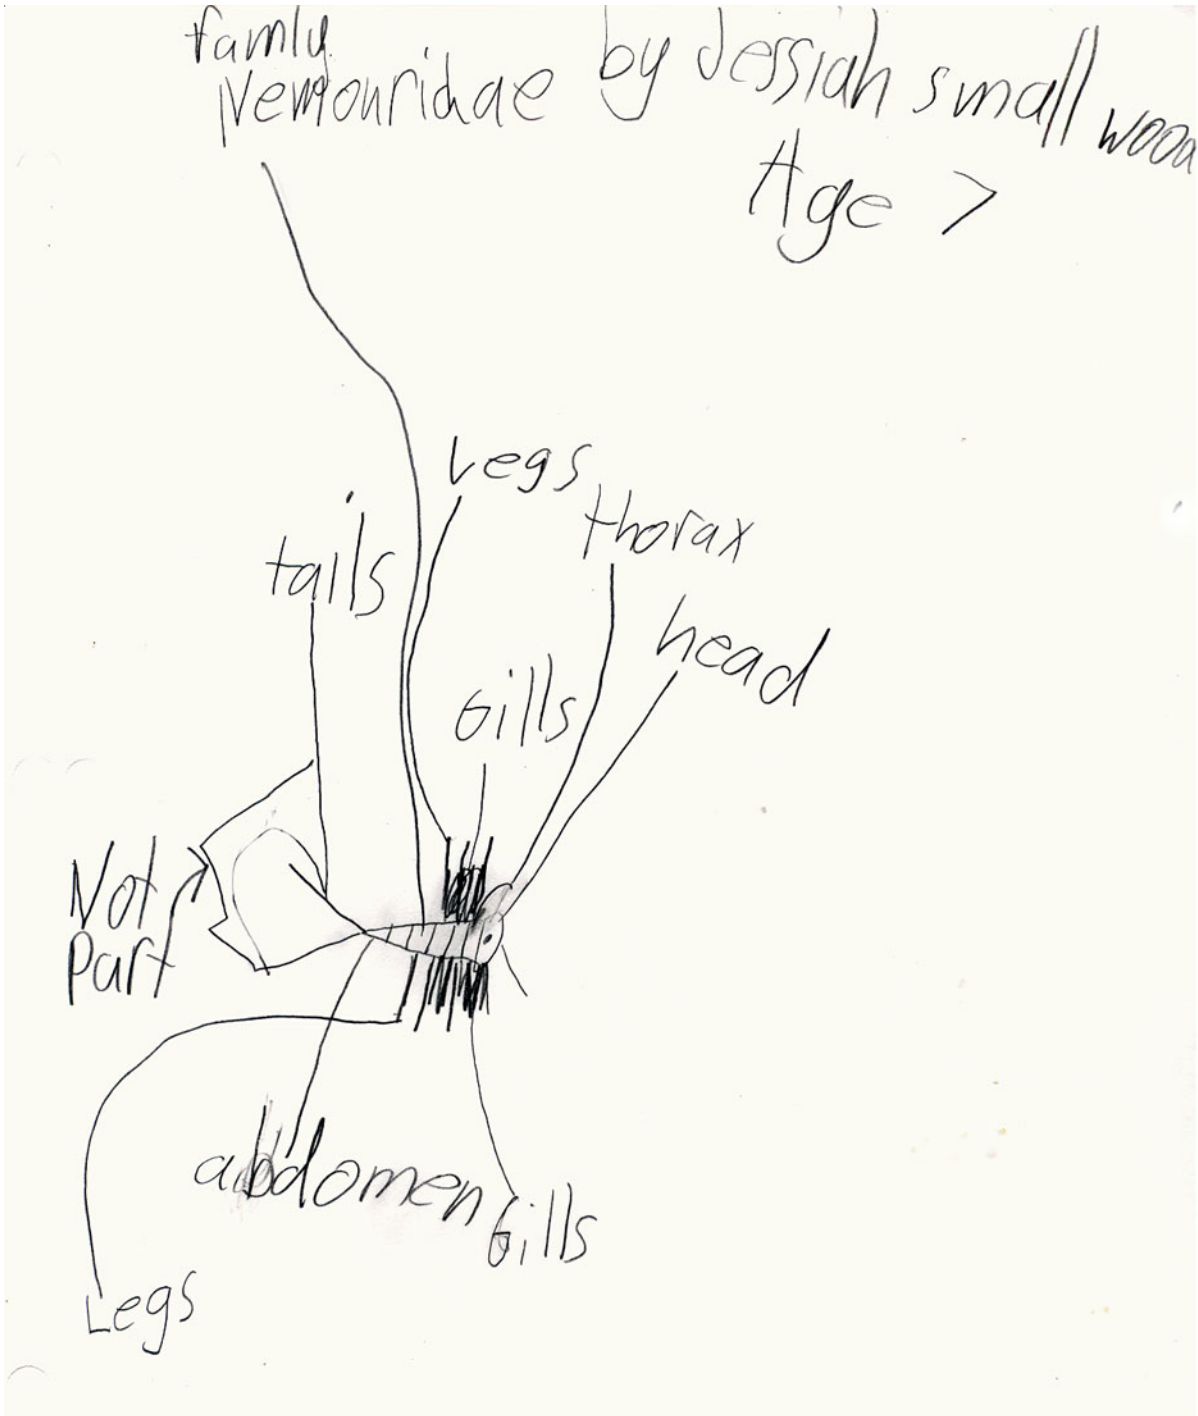 famly
Nemouridae
by Jessiah small wood
Age 7
Legs
thorax
tails
head
Gills
Not
Part
abdomen
Gills
Legs